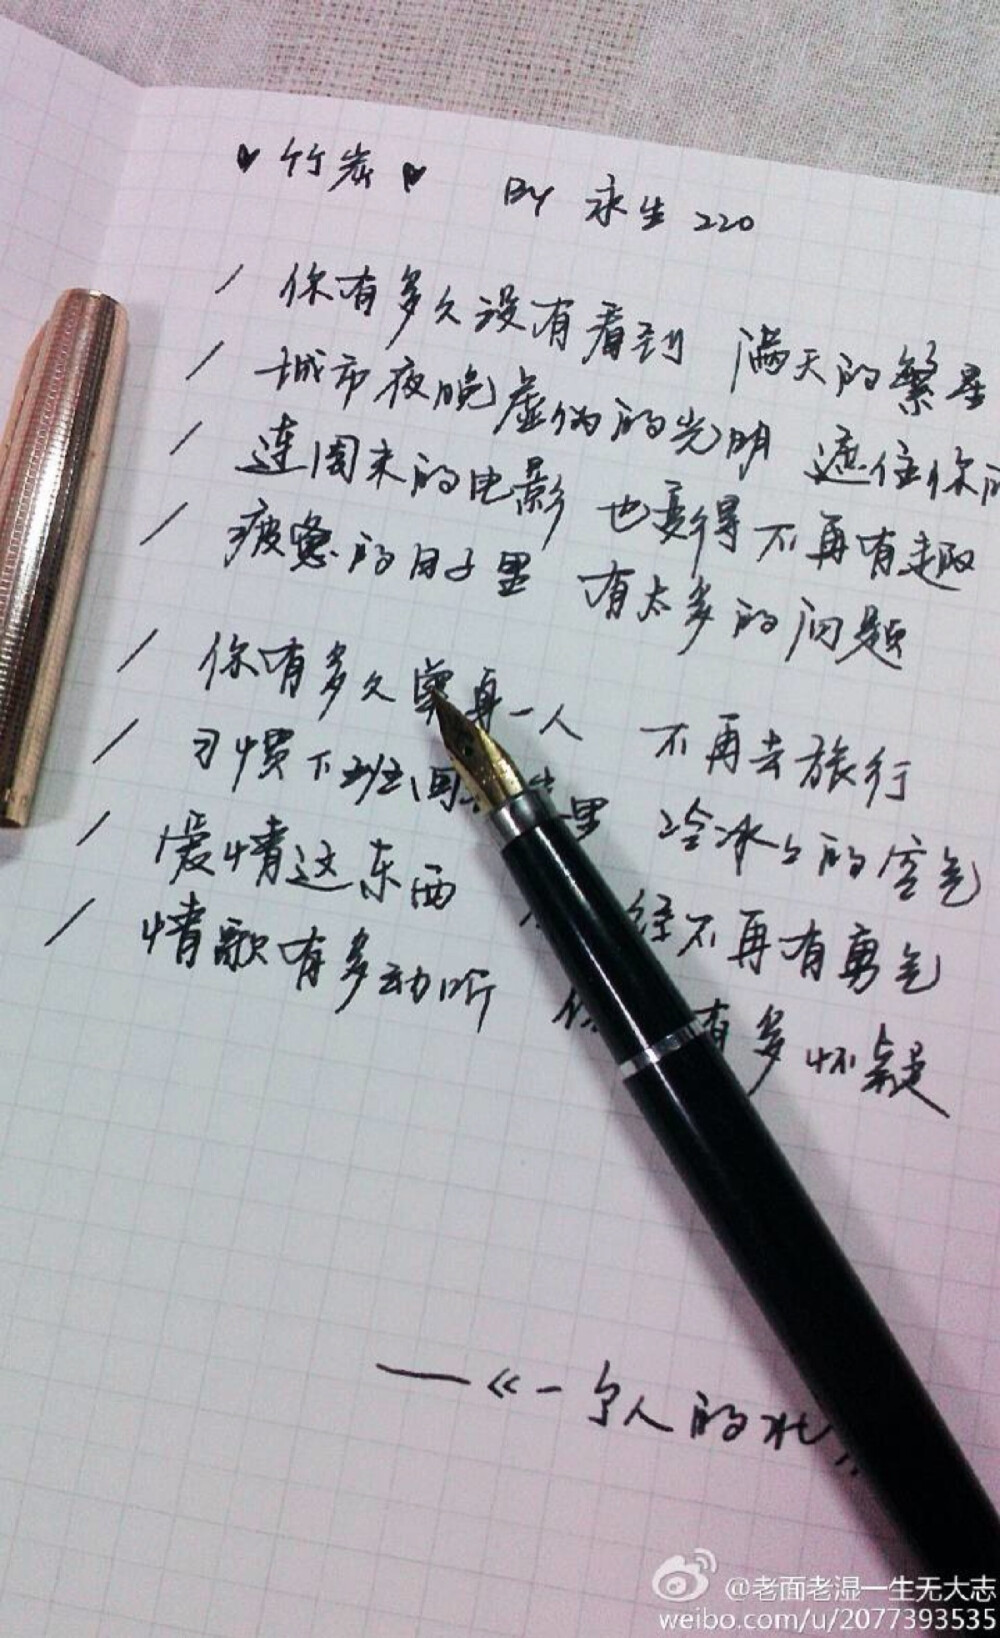 ♥ 竹炭 ♥ By 永生 220
/ 你有多久没有看到 满天的繁星
/ 城市夜晚虚伪的光明 遮住你
/ 连周末的电影 也变得不再有趣
/ 疲惫的日子里 有太多的问题
/ 你有多久单身一人 不再去旅行
/ 习惯下班回 里 冷冰冰的空气
/ 爱情这东西 经不再有勇气
/ 情歌有多动听 你 有多怀疑
——《一个人的北
@老面老湿一生无大志
weibo.com/u/2077393535